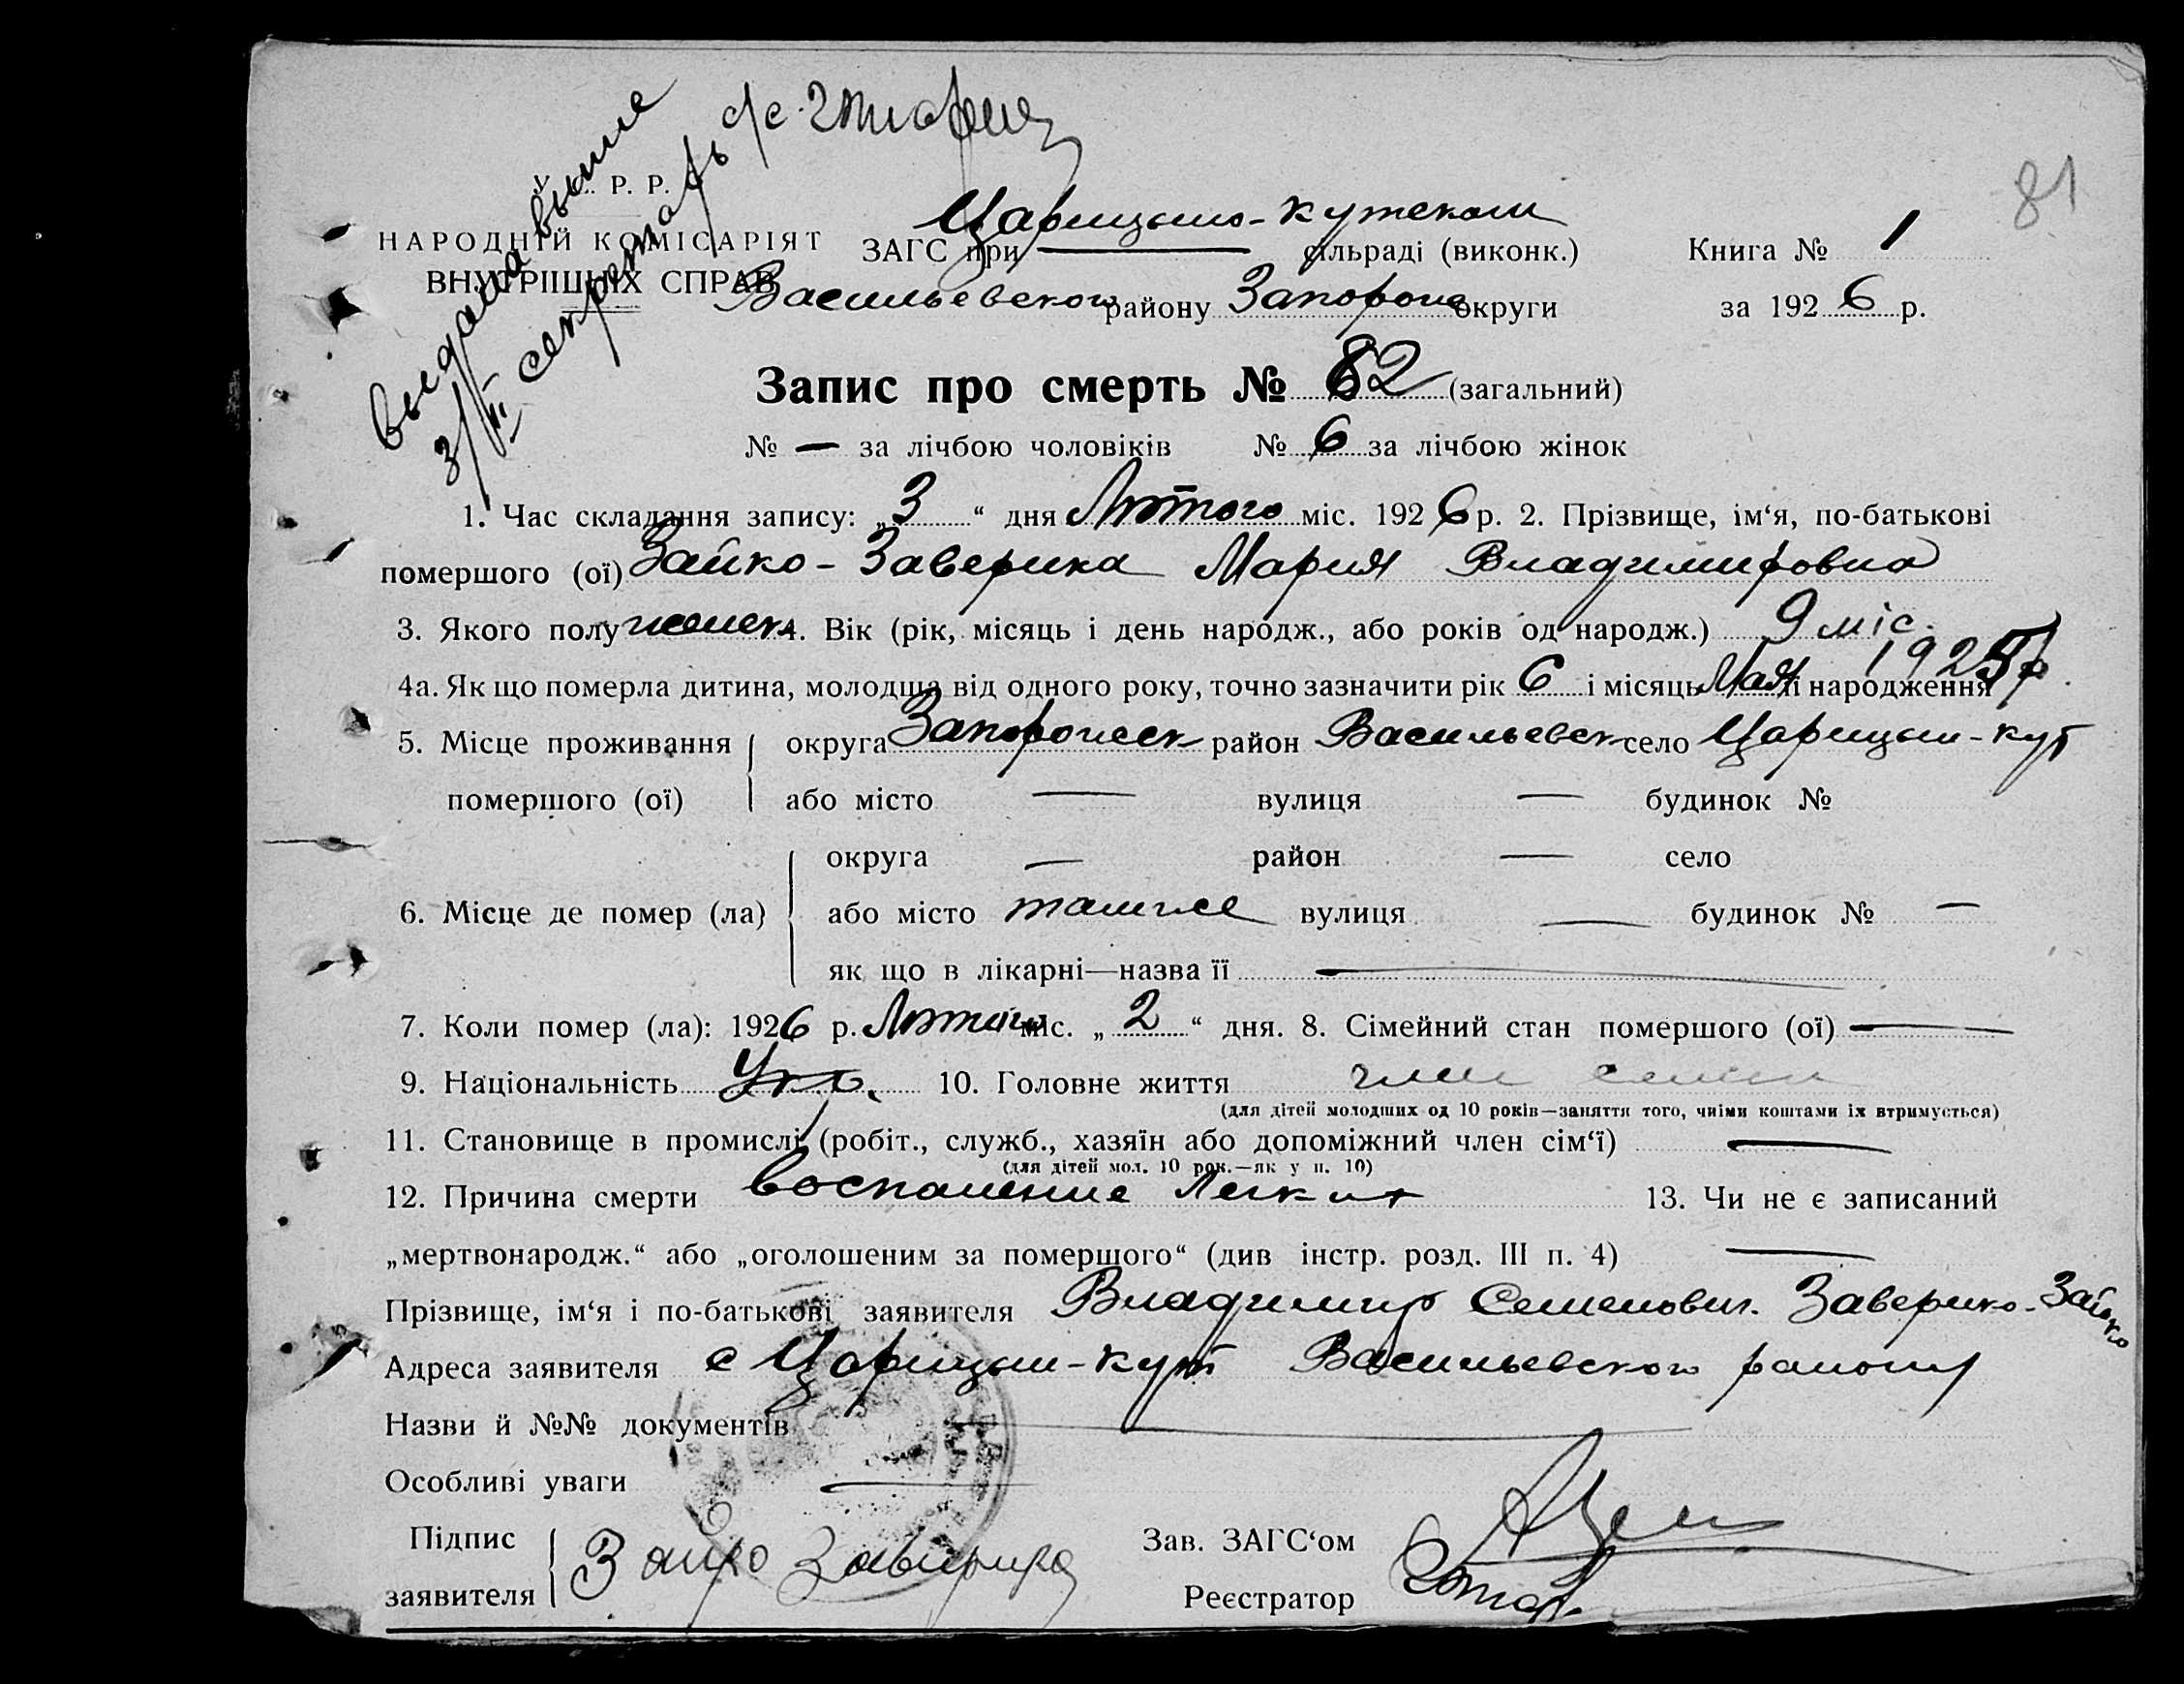 Выдана выпис
3/II секретарь с/с
У. Р. Р.
НАРОДНІЙ КОМІСАРІЯТ
ВНУТРІШНІХ СПРАВ
ЗАГС при Царицыно-Кутском сільраді (виконк.)
Книга № 1
81
Васильевского району Запорож округи
за 1926 р.
Запис про смерть № 82 (загальний)
№ — за лічбою чоловіків № 6 за лічбою жінок
1. Час складання запису: „3“ дня Лютого міс. 1926 р. 2. Прізвище, ім‘я, по-батькові
помершого (ої) Зайко-Заверика Мария Владимировна
3. Якого полу женск 4. Вік (рік, місяць і день народж., або років од народж.) 9 міс.
4а. Як що померла дитина, молодша від одного року, точно зазначити рік 6 і місяць Мая її народження 1925 р.
5. Місце проживання округа Запорожск район Васильевск село Царицын-Кут
помершого (ої) або місто — вулиця — будинок №
округа — район — село
6. Місце де помер (ла) або місто тамже вулиця — будинок № —
як що в лікарні—назва її —
7. Коли помер (ла): 1926 р. Лютого міс. „2“ дня. 8. Сімейний стан помершого (ої) —
9. Національність Укр. 10. Головне життя член семьи
(для дітей молодших од 10 років—заняття того, чиїми коштами їх втримується)
11. Становище в промислі (робіт., служб., хазяїн або допоміжний член сім‘ї) —
(для дітей мол. 10 рок.—як у п. 10)
12. Причина смерти воспаление Легких 13. Чи не є записаний
„мертвонародж.“ або „оголошеним за помершого“ (див інстр. розд. III п. 4) —
Прізвище, ім‘я і по-батькові заявителя Владимир Семенович. Заверико-Зайко
Адреса заявителя с Царицын-Кут Васильевского району
Назви й №№ документів —
Особливі уваги —
Підпис
заявителя Зайко Заверика
Зав. ЗАГС‘ом
Реєстратор